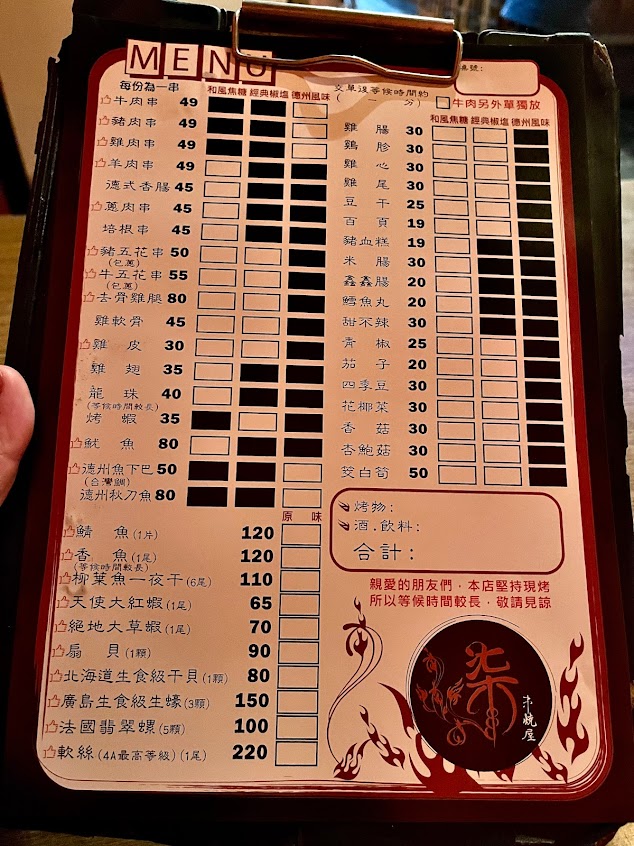 MENU
每份為一串
和風焦糖 經典椒塩 德州風味
牛肉串 49
豬肉串 49
雞肉串 49
羊肉串 49
德式香腸 45
蔥肉串 45
培根串 45
豬五花串 50
(包蔥)
牛五花串 55
(包蔥)
去骨雞腿 80
雞軟骨 45
雞皮 30
雞翅 35
龍珠 40
(等候時間較長)
烤蝦 35
魷魚 80
德州魚下巴 50
(台灣鯛)
德州秋刀魚 80
原味
鯖魚(1片) 120
香魚(1尾) 120
(等候時間較長)
柳葉魚一夜干(6尾) 110
天使大紅蝦(1尾) 65
絕地大草蝦(1尾) 70
扇貝(1顆) 90
北海道生食級干貝(1顆) 80
廣島生食級生蠔(3顆) 150
法國翡翠螺(5顆) 100
軟絲(4A最高等級)(1尾) 220
號:
交單後等候時間約
( 一 分)
牛肉另外單獨放
和風焦糖 經典椒塩 德州風味
雞腸 30
雞胗 30
雞心 30
雞尾 30
豆干 25
百頁 19
豬血糕 19
米腸 30
鑫鑫腸 20
鱈魚丸 20
甜不辣 30
青椒 25
茄子 20
四季豆 30
花椰菜 30
香菇 30
杏鮑菇 30
筊白筍 50
烤物:
酒.飲料:
合計:
親愛的朋友們,本店堅持現烤
所以等候時間較長,敬請見諒
柒
串燒屋